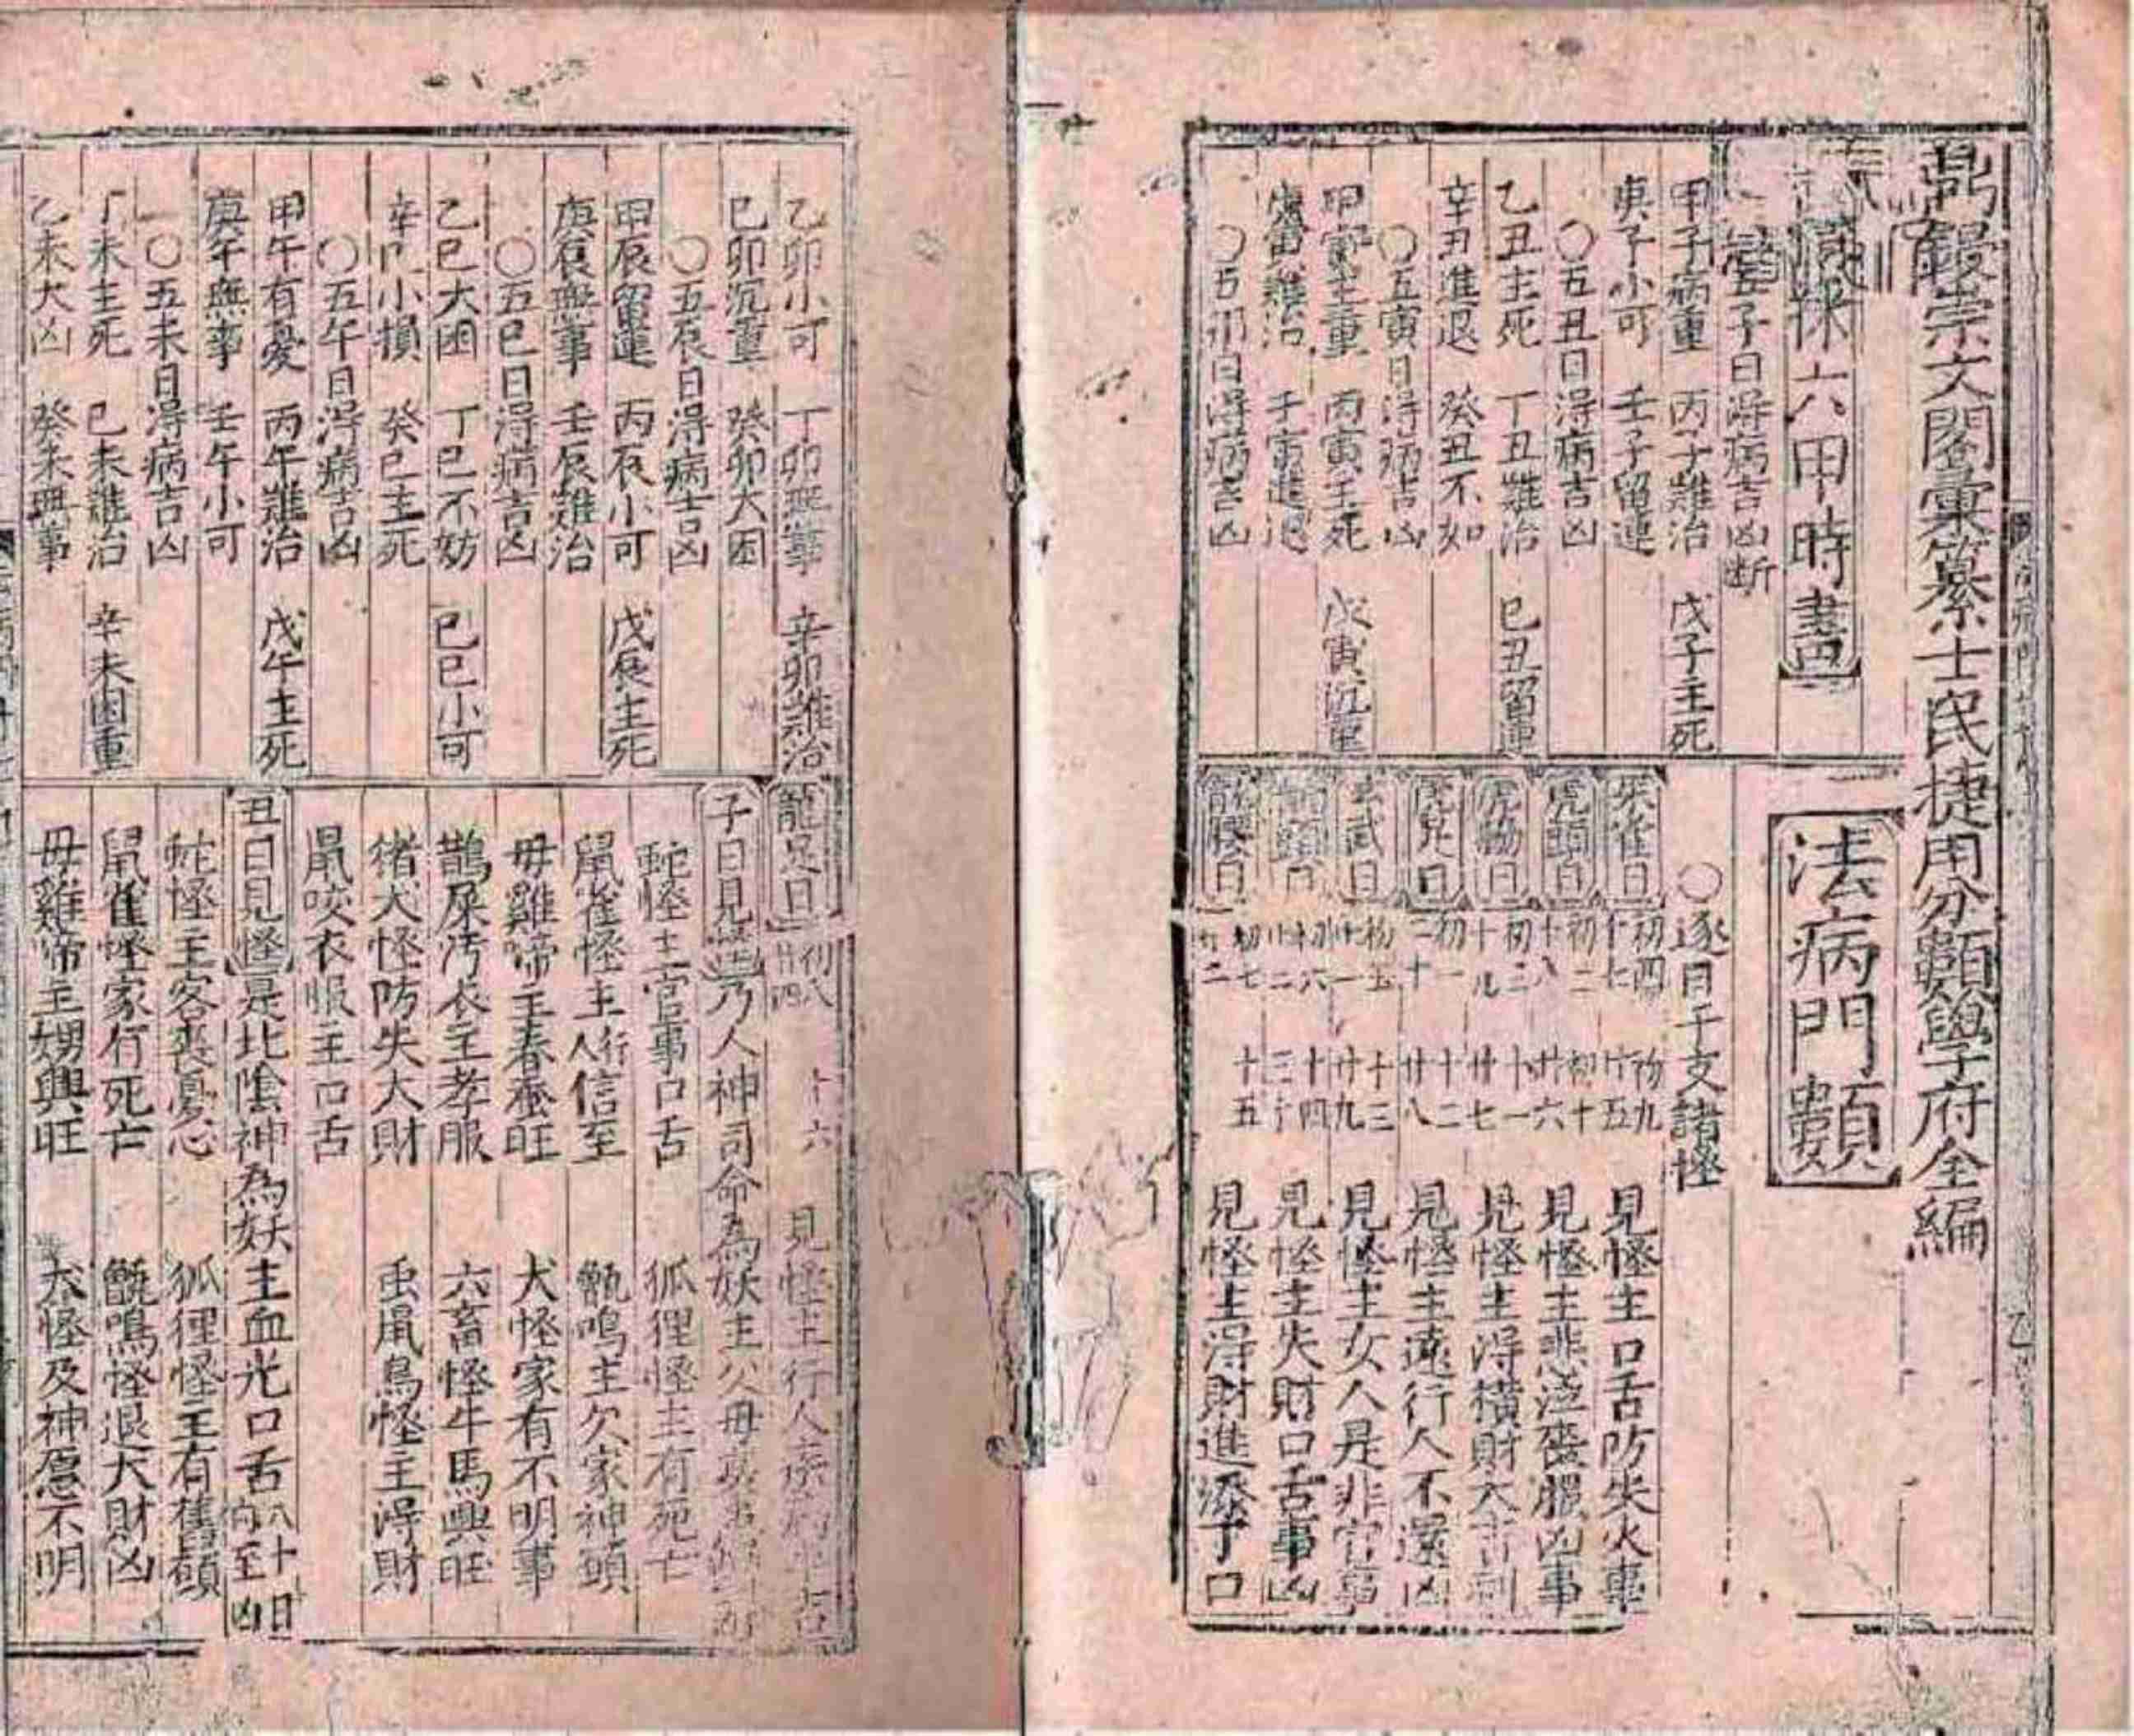 鼎鋟崇文閣彙纂士民捷用分類學府全編
六甲時書
五子日得病吉凶断
甲子病重 丙子難治 戊子主死
庚子小可 壬子留連
〇五丑日得病吉凶
乙丑主死 丁丑難治 己丑留連
辛丑進退 癸丑不如
〇五寅日得病吉凶
甲寅主重 丙寅主死 戊寅沉重
庚寅難治 壬寅進退
〇五卯日得病吉凶
法病門類
〇逐日干支諸怪
朱雀日 初四 初九 十七 廿五 見怪主口舌防失火事
虎頭日 初二 初十 十八 廿六 見怪主悲泣喪服凶事
虎脇日 初三 十一 十九 廿七 見怪主得橫財大吉利
虎足日 初一 十二 二十 廿八 見怪主遠行人不還凶
玄武日 初五 十三 廿一 廿九 見怪主女人是非官事
龍頭日 初六 十四 廿二 三十 見怪主失財口舌事凶
初七 十五 見怪主得財進添子口
乙卯小可 丁卯無事 辛卯難治
己卯沉重 癸卯大困
〇五辰日得病吉凶
甲辰留連 丙辰小可 戊辰主死
庚辰無事 壬辰難治
〇五巳日得病吉凶
乙巳大困 丁巳不妨 己巳小可
辛巳小損 癸巳主死
〇五午日得病吉凶
甲午有憂 丙午難治 戊午主死
庚午無事 壬午小可
〇五未日得病吉凶
丁未主死 己未難治 辛未困重
乙未大凶 癸未無事
龍足日 初八 十六 廿四 見怪主行人
子日見怪 乃人神司命為妖主父母
蛇怪主官事口舌 狐狸怪主有死亡
鼠雀怪主行人信至 甑鳴主欠家神頭
母雞啼主春蚕旺 犬怪家有不明事
鵲屎汚衣主孝服 六畜怪牛馬興旺
猪犬怪防失大財 虫鼠鳥怪主得財
鼠咬衣服主口舌
丑日見怪 是北陰神為妖主血光口舌八十日內至凶
蛇怪主客喪憂心 狐狸怪主有舊願
鼠雀怪家有死亡 甑鳴怪退大財凶
母雞啼主甥興旺 犬怪及神愿不明